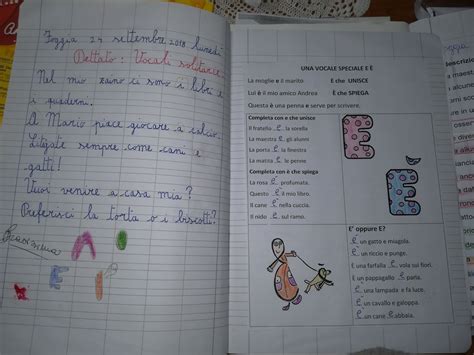 Foggia 24 settembre 2018 lunedì
Dettato: Vocali solitarie
Nel mio zaino ci sono i libri e
i quaderni.
A Mario piace giocare a calcio.
Litigate sempre come cani e
gatti!
Vuoi venire a casa mia?
Preferisci la torta o i biscotti?
Bravissima
A O
E I
UNA VOCALE SPECIALE E È
La moglie e il marito E che UNISCE
Lui è il mio amico Andrea È che SPIEGA
Questa è una penna e serve per scrivere.
Completa con e che unisce
Il fratello e la sorella
La maestra e gli alunni
La porta e la finestra
La matita e le penne
Completa con è che spiega
La rosa è profumata.
Questo è il mio libro.
Il cane è nella cuccia.
Il nido è sul ramo.
E
È
E' oppure E?
È un gatto e miagola.
È un riccio e punge.
È una farfalla e vola sui fiori.
È un pappagallo e parla.
È una lampada e fa luce.
È un cavallo e galoppa.
È un cane e abbaia.